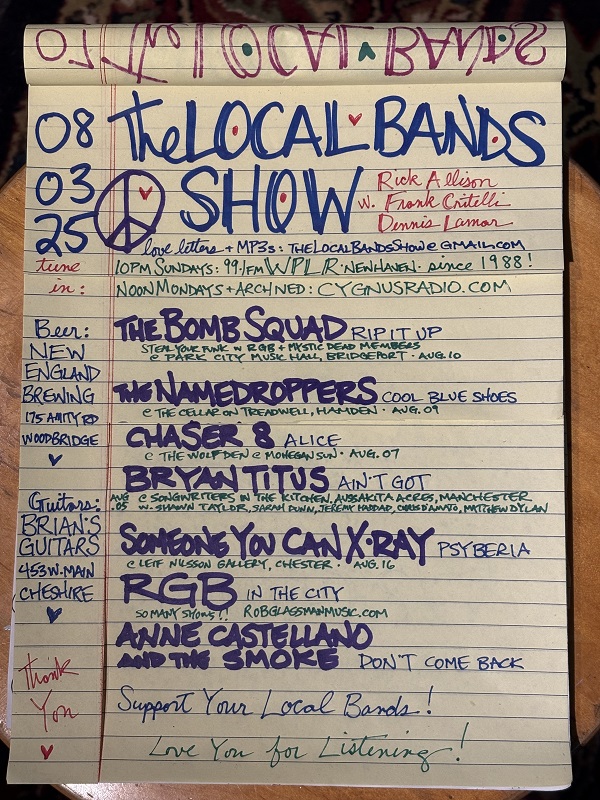 OT The LOCAL BANDS
08 The LOCAL BANDS
03 SHOW w. Rick Allison
Frank Critelli
25 Dennis Lamar
love letters + MP3s: THELOCALBANDSSHOW@GMAIL.COM
tune 10PM SUNDAYS: 99.1FM WPLR · NEW HAVEN · since 1988!
in: NOON MONDAYS + ARCHIVED: CYGNUSRADIO.COM
Beer: THE BOMB SQUAD RIP IT UP
NEW STEAL YOUR FUNK W RGB + MYSTIC DEAD MEMBERS
ENGLAND @ PARK CITY MUSIC HALL, BRIDGEPORT · AUG. 10
BREWING THE NAMEDROPPERS COOL BLUE SHOES
175 AMITY RD @ THE CELLAR ON TREADWELL, HAMDEN · AUG. 09
WOODBRIDGE CHASER 8 ALICE
@ THE WOLF DEN @ MOHEGAN SUN · AUG. 07
BRYAN TITUS AIN'T GOT
Guitars: AUG @ SONGWRITERS IN THE KITCHEN, AUSSAKITA ACRES, MANCHESTER
.05 W. SHAWN TAYLOR, SARAH DUNN, JEREMY HADDAD, CHRIS D'AMATO, MATTHEW DYLAN
BRIAN'S
GUITARS SOMEONE YOU CAN X·RAY PSYBERIA
453 W. MAIN @ LEIF NILSSON GALLERY, CHESTER · AUG. 16
CHESHIRE RGB IN THE CITY
SO MANY SHOWS!! ROBGLASSMANMUSIC.COM
ANNE CASTELLANO
AND THE SMOKE DON'T COME BACK
Thank
You Support Your Local Bands!
Love You for Listening!